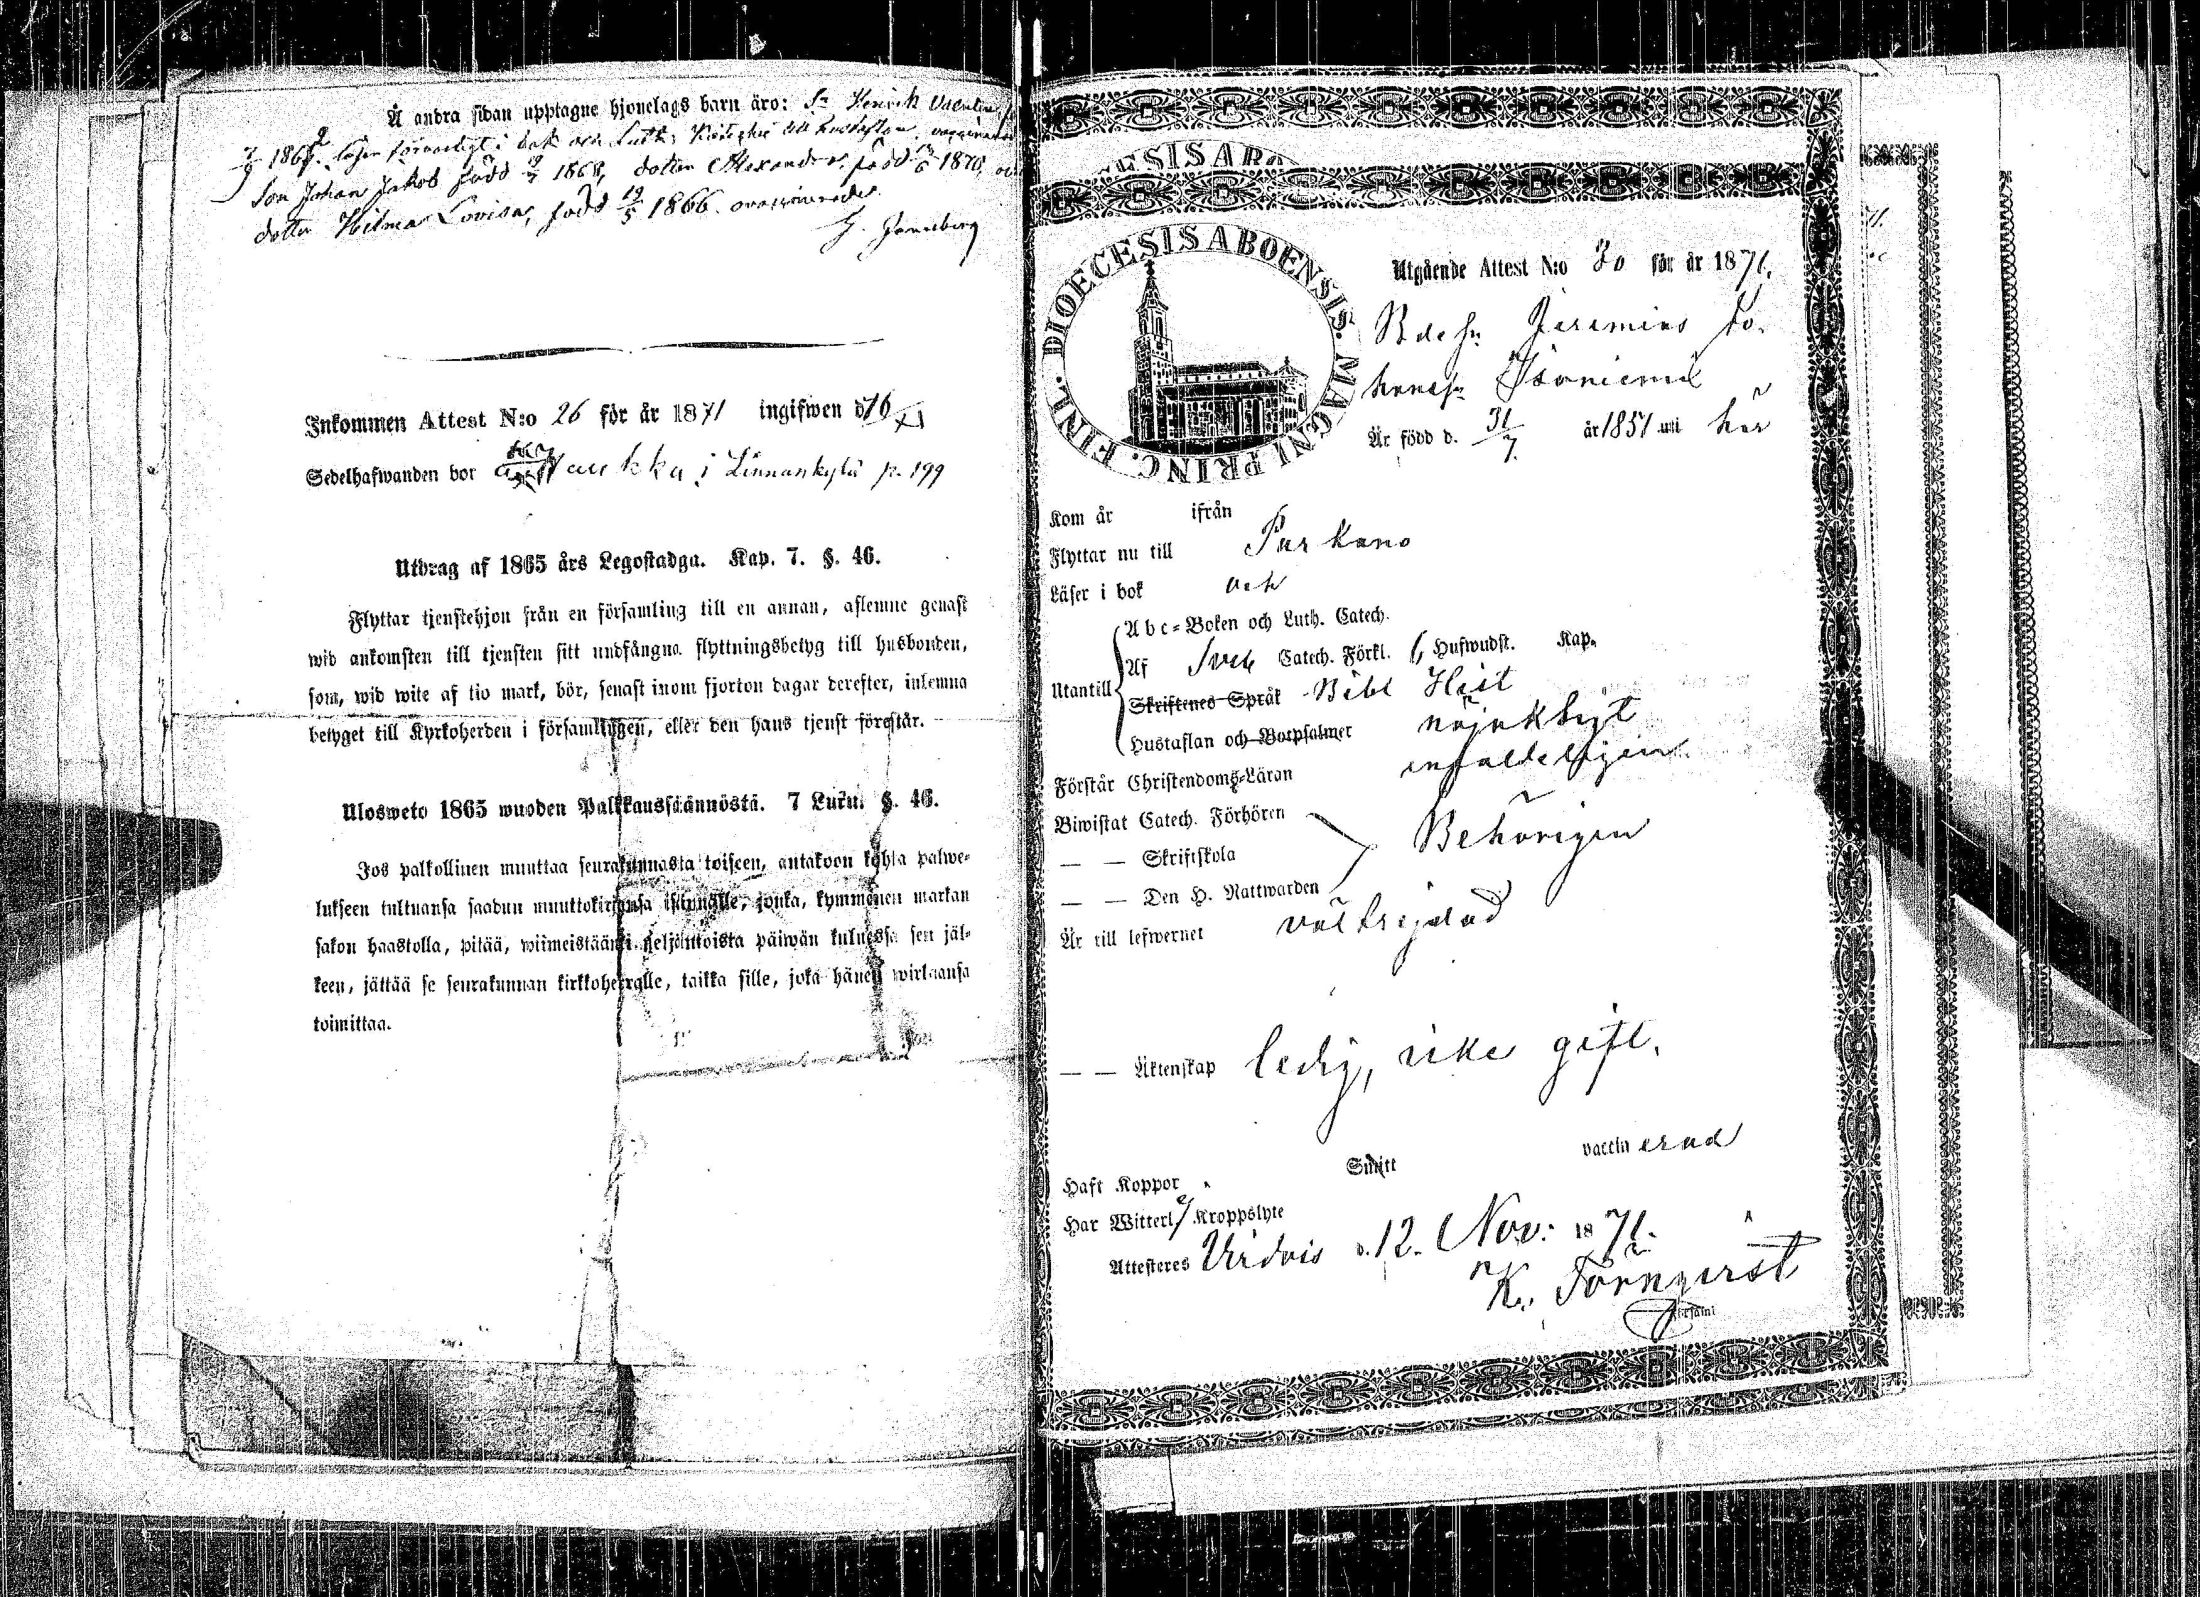 Å andra sidan upptagne hjonelags barn äro: Sn Henrik Valentin
1862. läser försvarligt i bok och Luth:
Son Johan Jakob född 1868, dotter Alexandra, född 1870,
dotter Hilma Lovisa, född 19/5 1866.
Inkommen Attest N:o 26 för år 1871 ingifwen d. 16/XI
Sedelhafwanden bor Naukka i Linnankylä p. 199
Utdrag af 1865 års Legostadga. Kap. 7. §. 46.
Flyttar tjenstehjon från en församling till en annan, aflemne genast
wid ankomsten till tjensten sitt undfångna flyttningsbetyg till husbonden,
som, wid wite af tio mark, bör, senast inom fjorton dagar derefter, inlemna
betyget till Kyrkoherden i församlingen, eller den hans tjenst förestår.
Ulosweto 1865 wuoden Palkkaussäännöstä. 7 Luku. §. 46.
Jos palkollinen muuttaa seurakunnasta toiseen, antakoon kohta palwe-
lukseen tultuansa saadun muuttokirjansa isännälle, jonka, kymmenen markan
sakon haastolla, pitää, wiimeistäänki neljäntoista päiwän kuluessa sen jäl-
keen, jättää se seurakunnan kirkkoherralle, taikka sille, joka hänen wirkaansa
toimittaa.
DIOECESIS ABOENSIS. MAGNI PRINC. FINL.
Utgående Attest N:o 30 för år 1871.
Bdesn Jeremias Jo-
hansn Isoniemi
Är född d. 31/7 år 1851 uti här
Kom år ifrån
Flyttar nu till Parkano
Läser i bok och
Utantill
Abc-Boken och Luth. Catech.
Af Sveb Catech. Förkl. Hufwudst. Kap.
Skriftenes Språk Bibl Hist
Hustaflan och Botpsalmer nöjaktigt
Förstår Christendoms-Läran enfaldeligen
Biwistat Catech. Förhören
— — Skriftskola Behörigen
— — Den H. Nattwarden
Är till lefwernet välfrejdad
— — Äktenskap ledig, icke gift.
Haft Koppor Smitt vaccinerad
Har Witterl. ej Kroppslyte
Attesteres Virdois d. 12. Nov: 1871.
K. Törnqvist